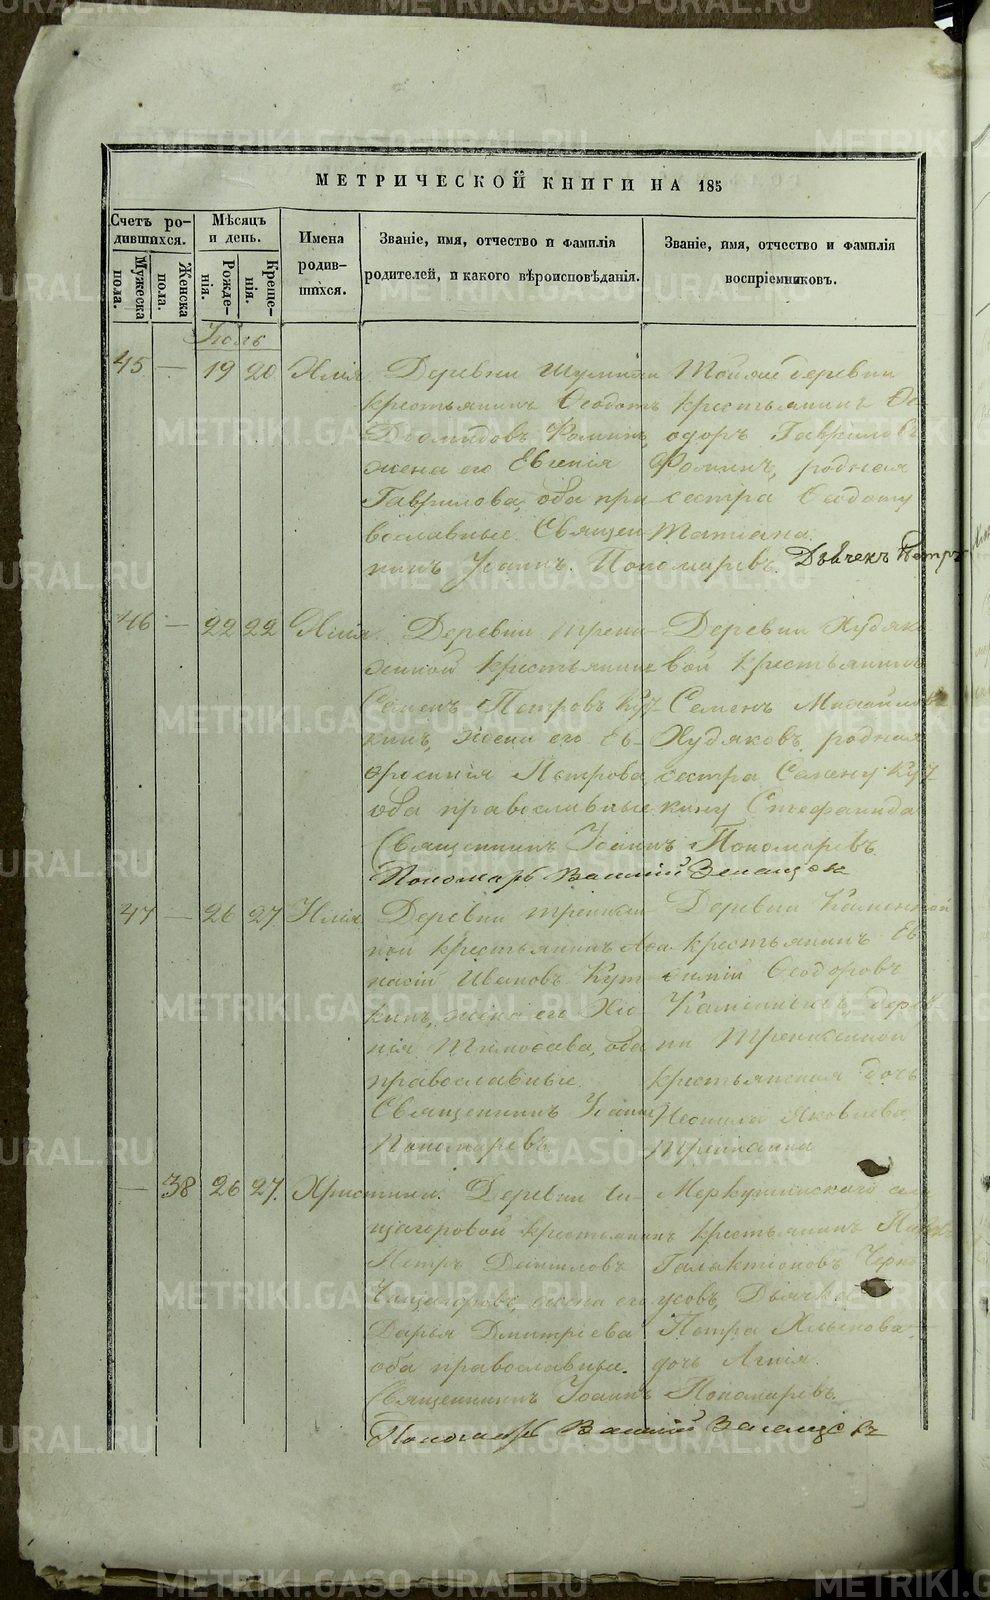 МЕТРИЧЕСКОЙ КНИГИ НА 185
Счетъ ро-
дившихся.
Мужеска
пола.
Женска
пола.
Мѣсяцъ
и день.
Рожде-
нія.
Креще-
нія.
Имена
родив-
шихся.
Званіе, имя, отчество и фамилія
родителей, и какого вѣроисповѣданія.
Званіе, имя, отчество и фамилія
воспріемниковъ.
Іюль
45 — 19 20 Илія
Деревни
крестьянинъ Ѳеодотъ
Диомидовъ Фоминъ,
жена его Евгенія
Гаврилова, оба пра-
вославные. Священ-
никъ Іоаннъ Пономаревъ.
Тойже деревни
крестьянинъ Ѳе-
одоръ Гавриловъ
Фоминъ, родная
сестра Ѳеодоту
Татіана.
Дьячекъ Петръ
46 — 22 22 Илія.
Деревни
крестьянинъ
Семенъ Петровъ Куч-
кинъ, жена его Ев-
фросинія Петрова
оба православные
Священникъ Іоаннъ Пономаревъ.
Деревни Худяко-
вой крестьянинъ
Семенъ Михайловъ
Худяковъ, родная
сестра Семену Куч-
кину Стефанида
Пономарь Василій
47 — 26 27 Илія
Деревни
крестьянинъ Аѳа-
насій Ивановъ
кинъ, жена его Ксе-
нія Тимоѳеева, оба
православные.
Священникъ Іоаннъ
Пономаревъ.
Деревни Каменной
крестьянинъ Ев-
ѳимій Ѳеодоровъ
дерев-
ни
крестьянская дочь
Яковлева
— 38 26 27. Христина.
Деревни Чи-
щагоровой крестьянинъ
Петръ Даниловъ
жена его
Дарья Дмитріева
оба православные.
Священникъ Іоаннъ Пономаревъ.
Меркушинскаго села
крестьянинъ
Галактіоновъ Черно-
усовъ, Дьячка
Петра
дочь Агнія.
Пономарь Василій
METRIKI.GASO-URAL.RU